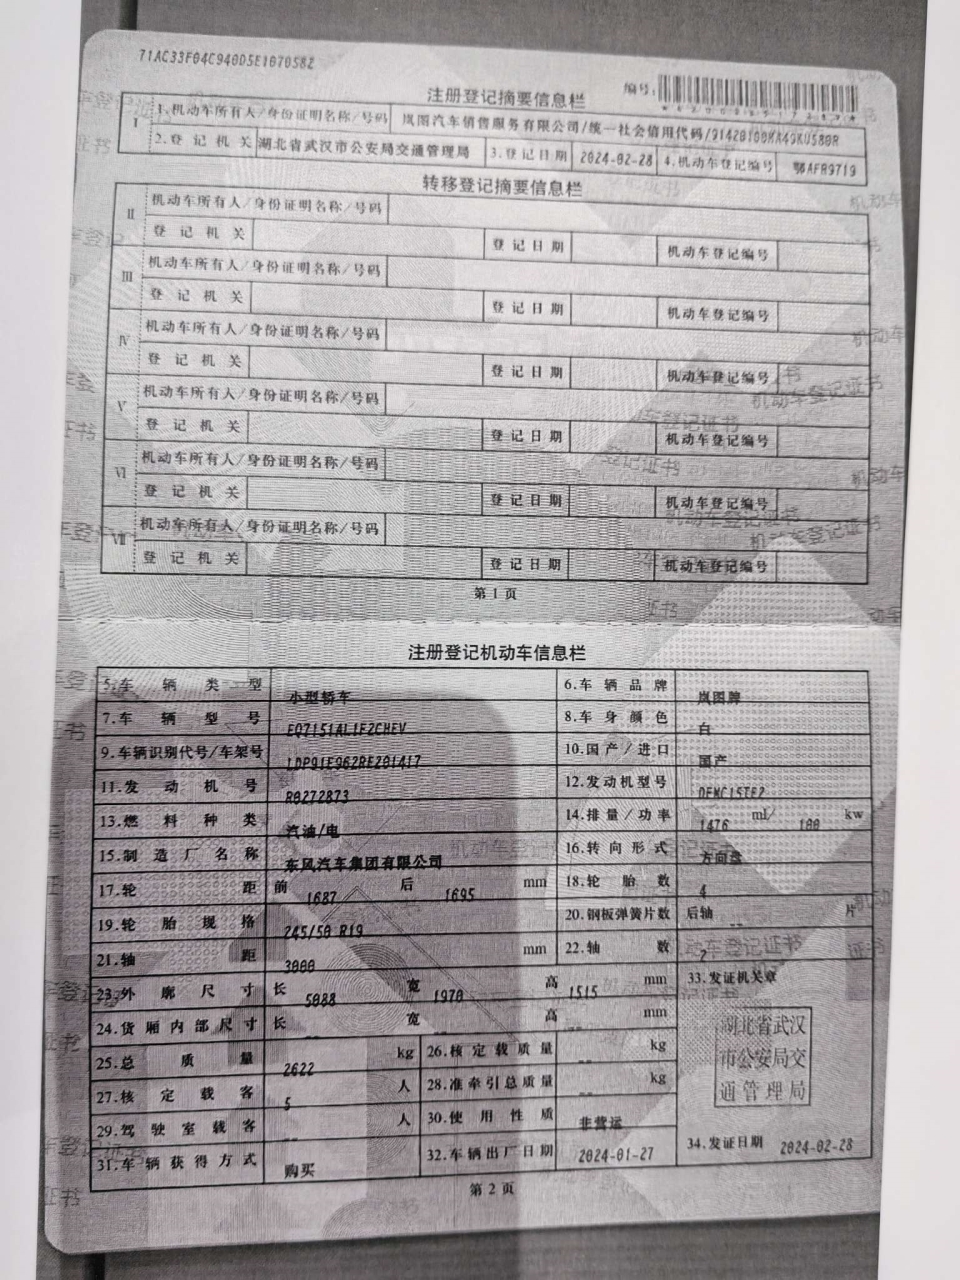 71AC33F04C940D5E1070582
编号:
注册登记摘要信息栏
I 1.机动车所有人/身份证明名称/号码 岚图汽车销售服务有限公司/统一社会信用代码/91420100MA49KU580R
2.登记机关 湖北省武汉市公安局交通管理局 3.登记日期 2024-02-28 4.机动车登记编号 鄂AF89719
转移登记摘要信息栏
II 机动车所有人/身份证明名称/号码
登记机关 登记日期 机动车登记编号
III 机动车所有人/身份证明名称/号码
登记机关 登记日期 机动车登记编号
IV 机动车所有人/身份证明名称/号码
登记机关 登记日期 机动车登记编号
V 机动车所有人/身份证明名称/号码
登记机关 登记日期 机动车登记编号
VI 机动车所有人/身份证明名称/号码
登记机关 登记日期 机动车登记编号
VII 机动车所有人/身份证明名称/号码
登记机关 登记日期 机动车登记编号
第1页
注册登记机动车信息栏
5.车辆类型 小型轿车 6.车辆品牌 岚图牌
7.车辆型号 EQ7151AL1F2CHEV 8.车身颜色 白
9.车辆识别代号/车架号 LDP91E962RE201417 10.国产/进口 国产
11.发动机号 R0272873 12.发动机型号 DFMC15TE2
13.燃料种类 汽油/电 14.排量/功率 1476 ml/ 100 kw
15.制造厂名称 东风汽车集团有限公司 16.转向形式 方向盘
17.轮距 前 1687 后 1695 mm 18.轮胎数 4
19.轮胎规格 245/50 R19 20.钢板弹簧片数 后轴 -- 片
21.轴距 3000 mm 22.轴数 2
23.外廓尺寸 长 5088 宽 1970 高 1515 mm 33.发证机关章
24.货厢内部尺寸 长 -- 宽 -- 高 -- mm
湖北省武汉
市公安局交
通管理局
25.总质量 2622 kg 26.核定载质量 -- kg
27.核定载客 5 人 28.准牵引总质量 -- kg
29.驾驶室载客 -- 人 30.使用性质 非营运
31.车辆获得方式 购买 32.车辆出厂日期 2024-01-27 34.发证日期 2024-02-28
第2页